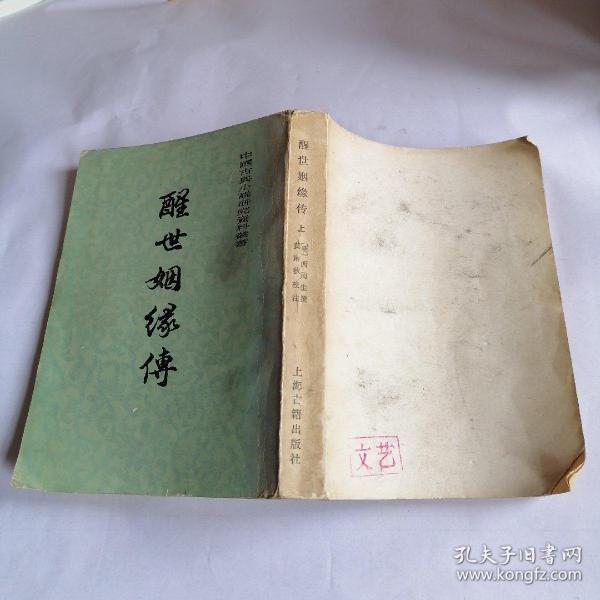 中國古典小說研究資料叢書
醒世姻緣傳
醒世姻缘传
上
西周生撰
黄肃秋校注
上海古籍出版社
文艺
孔夫子旧书网
www.kongfz.com